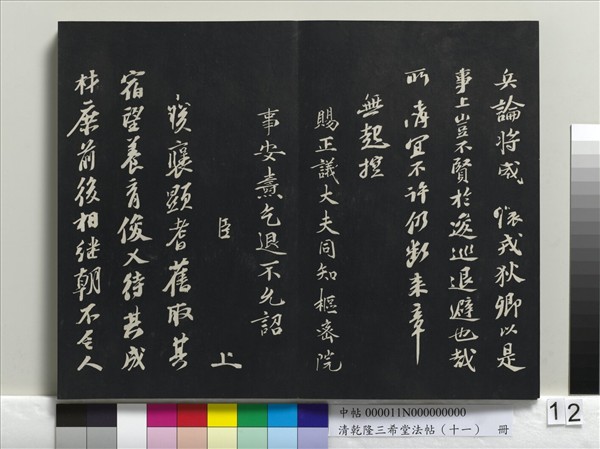 兵論將成 懷戎狄卿以是
事上豈不賢於逡巡退避也哉
所請宜不許仍斷來章
賜正議大夫同知樞密院
事安燾乞退不允詔
臣 上
朕褒顯耆舊取其
宿望養育俊乂待其成
材庶前後相継朝不乏人
中帖 000011N000000000
清乾隆三希堂法帖（十一） 冊
12